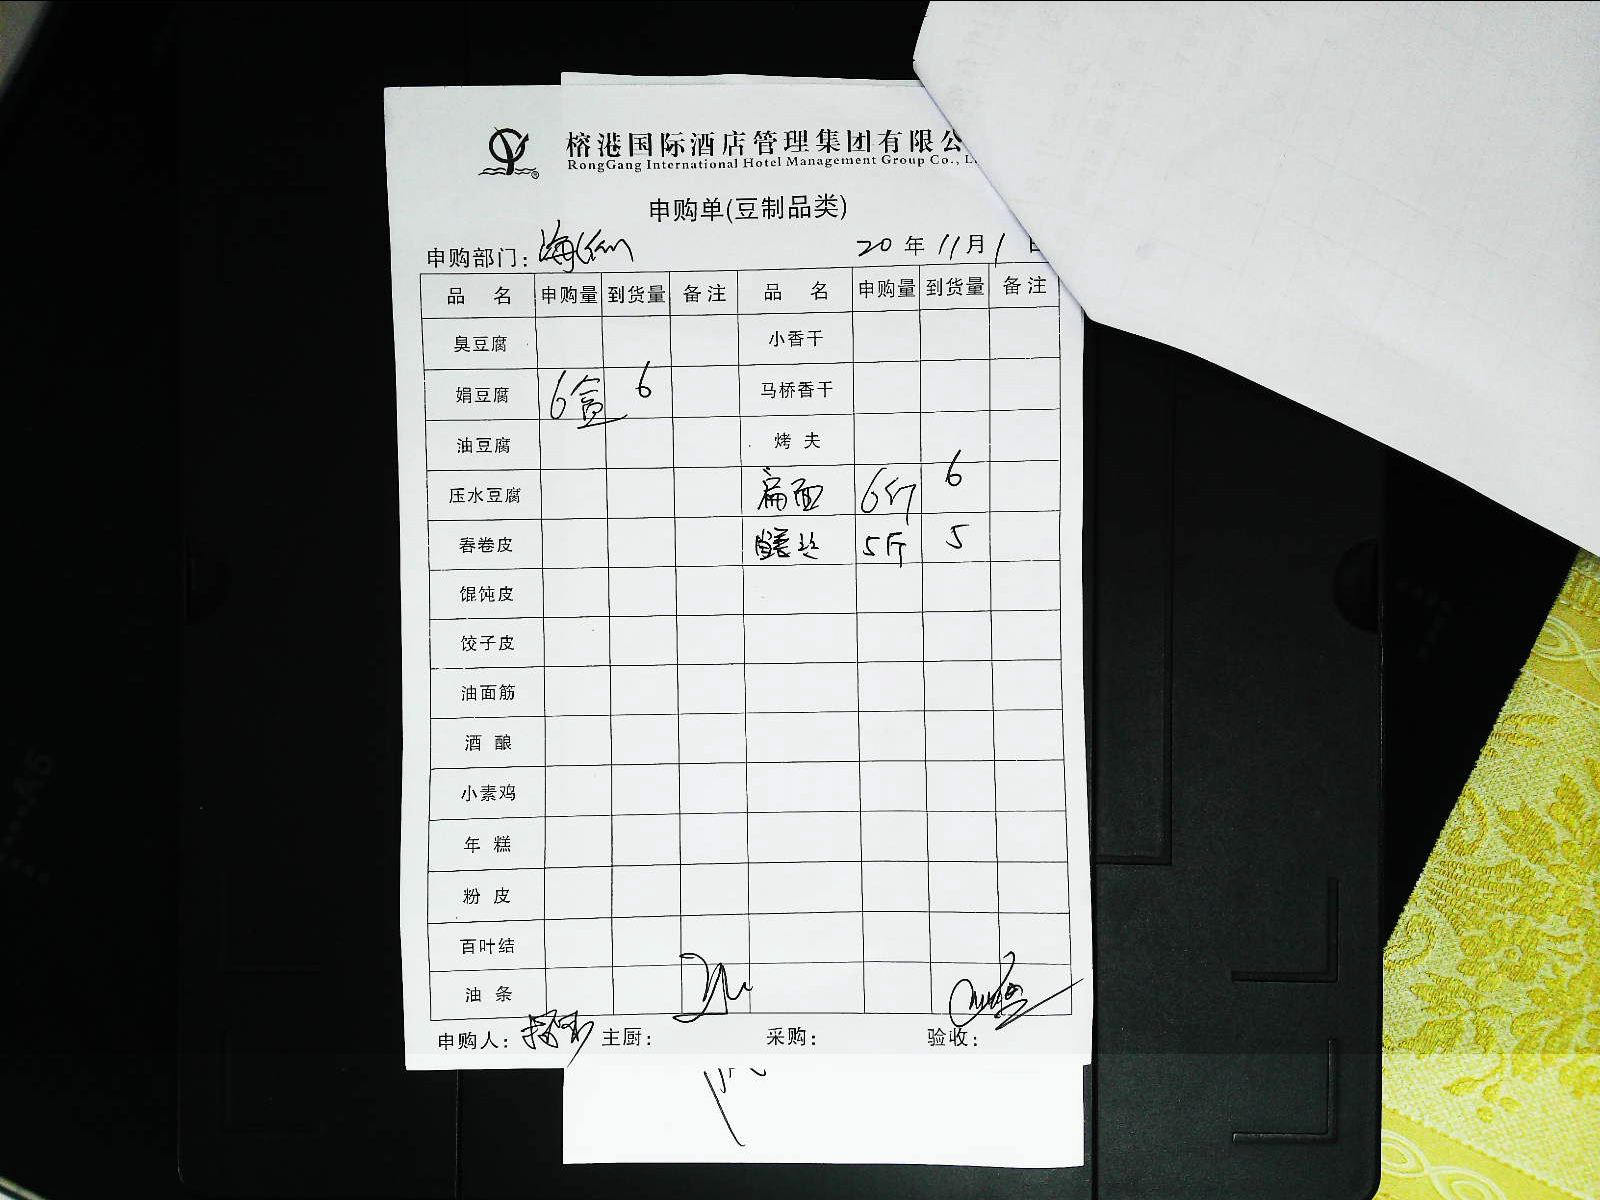 榕港国际酒店管理集团有限公
RongGang International Hotel Management Group Co., L
申购单(豆制品类)
申购部门: 海 20 年 11 月 1 日
品 名 申购量 到货量 备注 品 名 申购量 到货量 备注
臭豆腐 小香干
娟豆腐 6盒 6 马桥香干
油豆腐 烤 夫
压水豆腐 扁面 6斤 6
春卷皮 5斤 5
馄饨皮
饺子皮
油面筋
酒 酿
小素鸡
年 糕
粉 皮
百叶结
油 条
申购人: 主厨: 采购: 验收: